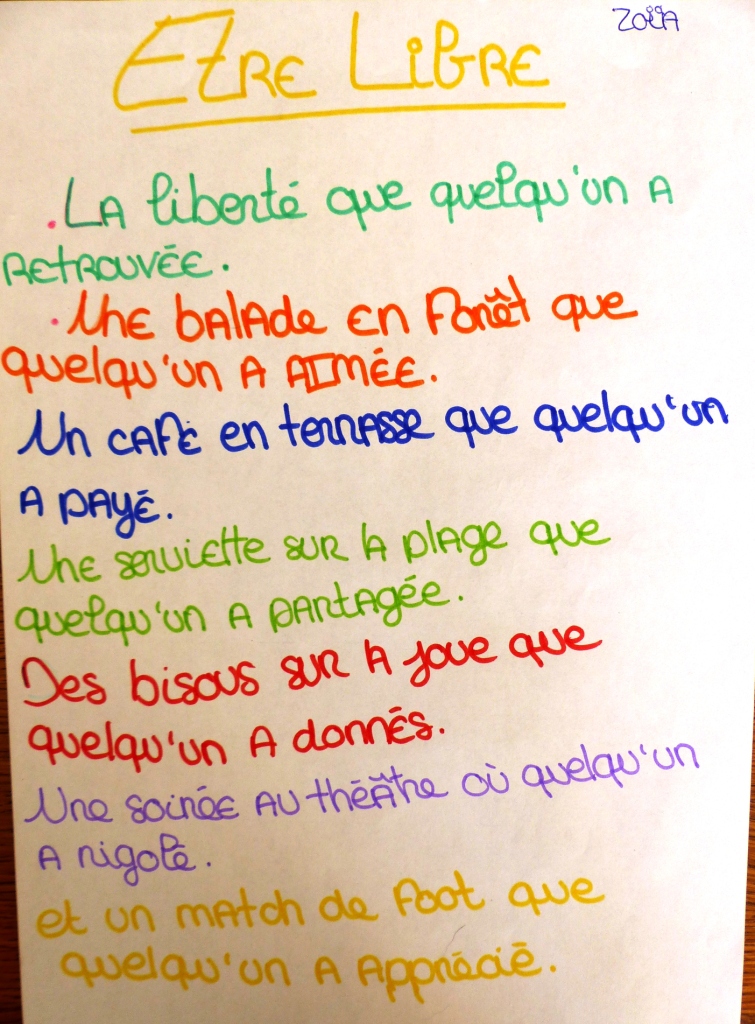 Zoëa
ETRE LIBRE
. La liberté que quelqu'un a
retrouvée.
. Une balade en forêt que
quelqu'un a aimée.
Un café en terrasse que quelqu'un
a payé.
Une serviette sur la plage que
quelqu'un a partagée.
Des bisous sur la joue que
quelqu'un a donnés.
Une soirée au théâtre où quelqu'un
a rigolé.
et un match de foot que
quelqu'un a apprécié.